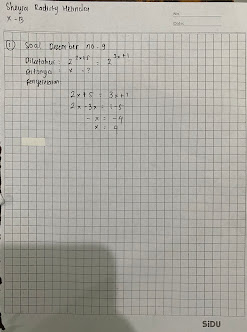 X - B
No :
Date :
① Soal Desember no. 9
Diketahui : 2^2x+5 = 2^3x+1
Ditanya : x = ?
Penyelesaian :
2x + 5 = 3x + 1
2x - 3x = 1 - 5
- x = - 4
x = 4
SiDU